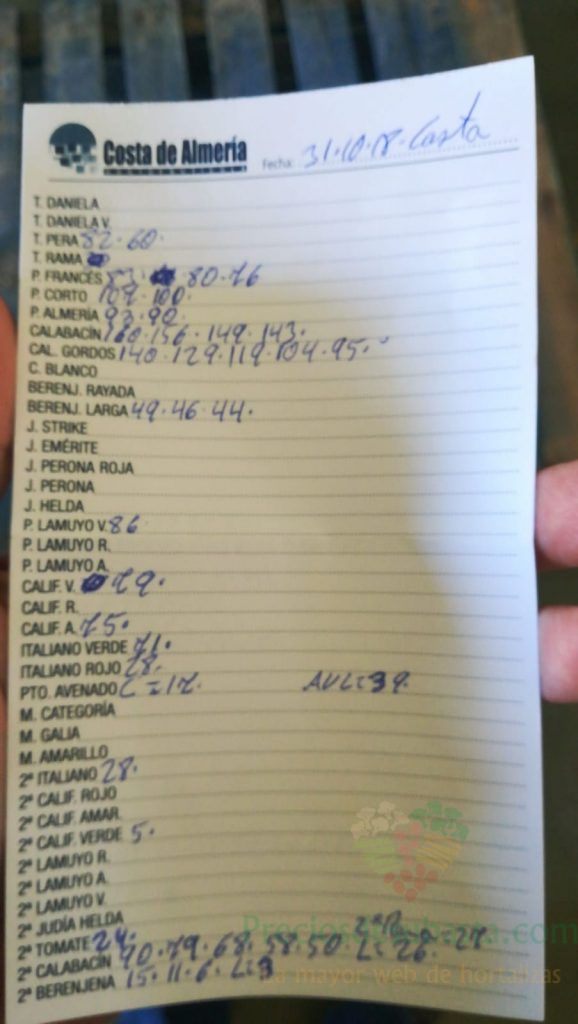 Costa de Almería
Fecha: 31.10.18. Costa
T. DANIELA
T. DANIELA V.
T. PERA 82.60.
T. RAMA
P. FRANCÉS 83. 80.76
P. CORTO 107.100.
P. ALMERÍA 93.90.
CALABACÍN 160.156.149.143.
CAL. GORDOS 140.129.119.104.95.
C. BLANCO
BERENJ. RAYADA
BERENJ. LARGA 49.46.44.
J. STRIKE
J. EMÉRITE
J. PERONA ROJA
J. PERONA
J. HELDA
P. LAMUYO V. 86
P. LAMUYO R.
P. LAMUYO A.
CALIF. V. 79.
CALIF. R.
CALIF. A. 75.
ITALIANO VERDE 71.
ITALIANO ROJO 78.
PTO. AVENADO L=17.
M. CATEGORÍA
M. GALIA
M. AMARILLO
2ª ITALIANO 28.
2ª CALIF. ROJO
2ª CALIF. AMAR.
2ª CALIF. VERDE 5.
2ª LAMUYO R.
2ª LAMUYO A.
2ª LAMUYO V.
2ª JUDÍA HELDA
2ª TOMATE 24.
2ª CALABACÍN 90.79.68.58.50. L: 26.
2ª BERENJENA 15.11.6. L:3
La mayor web de hortalizas